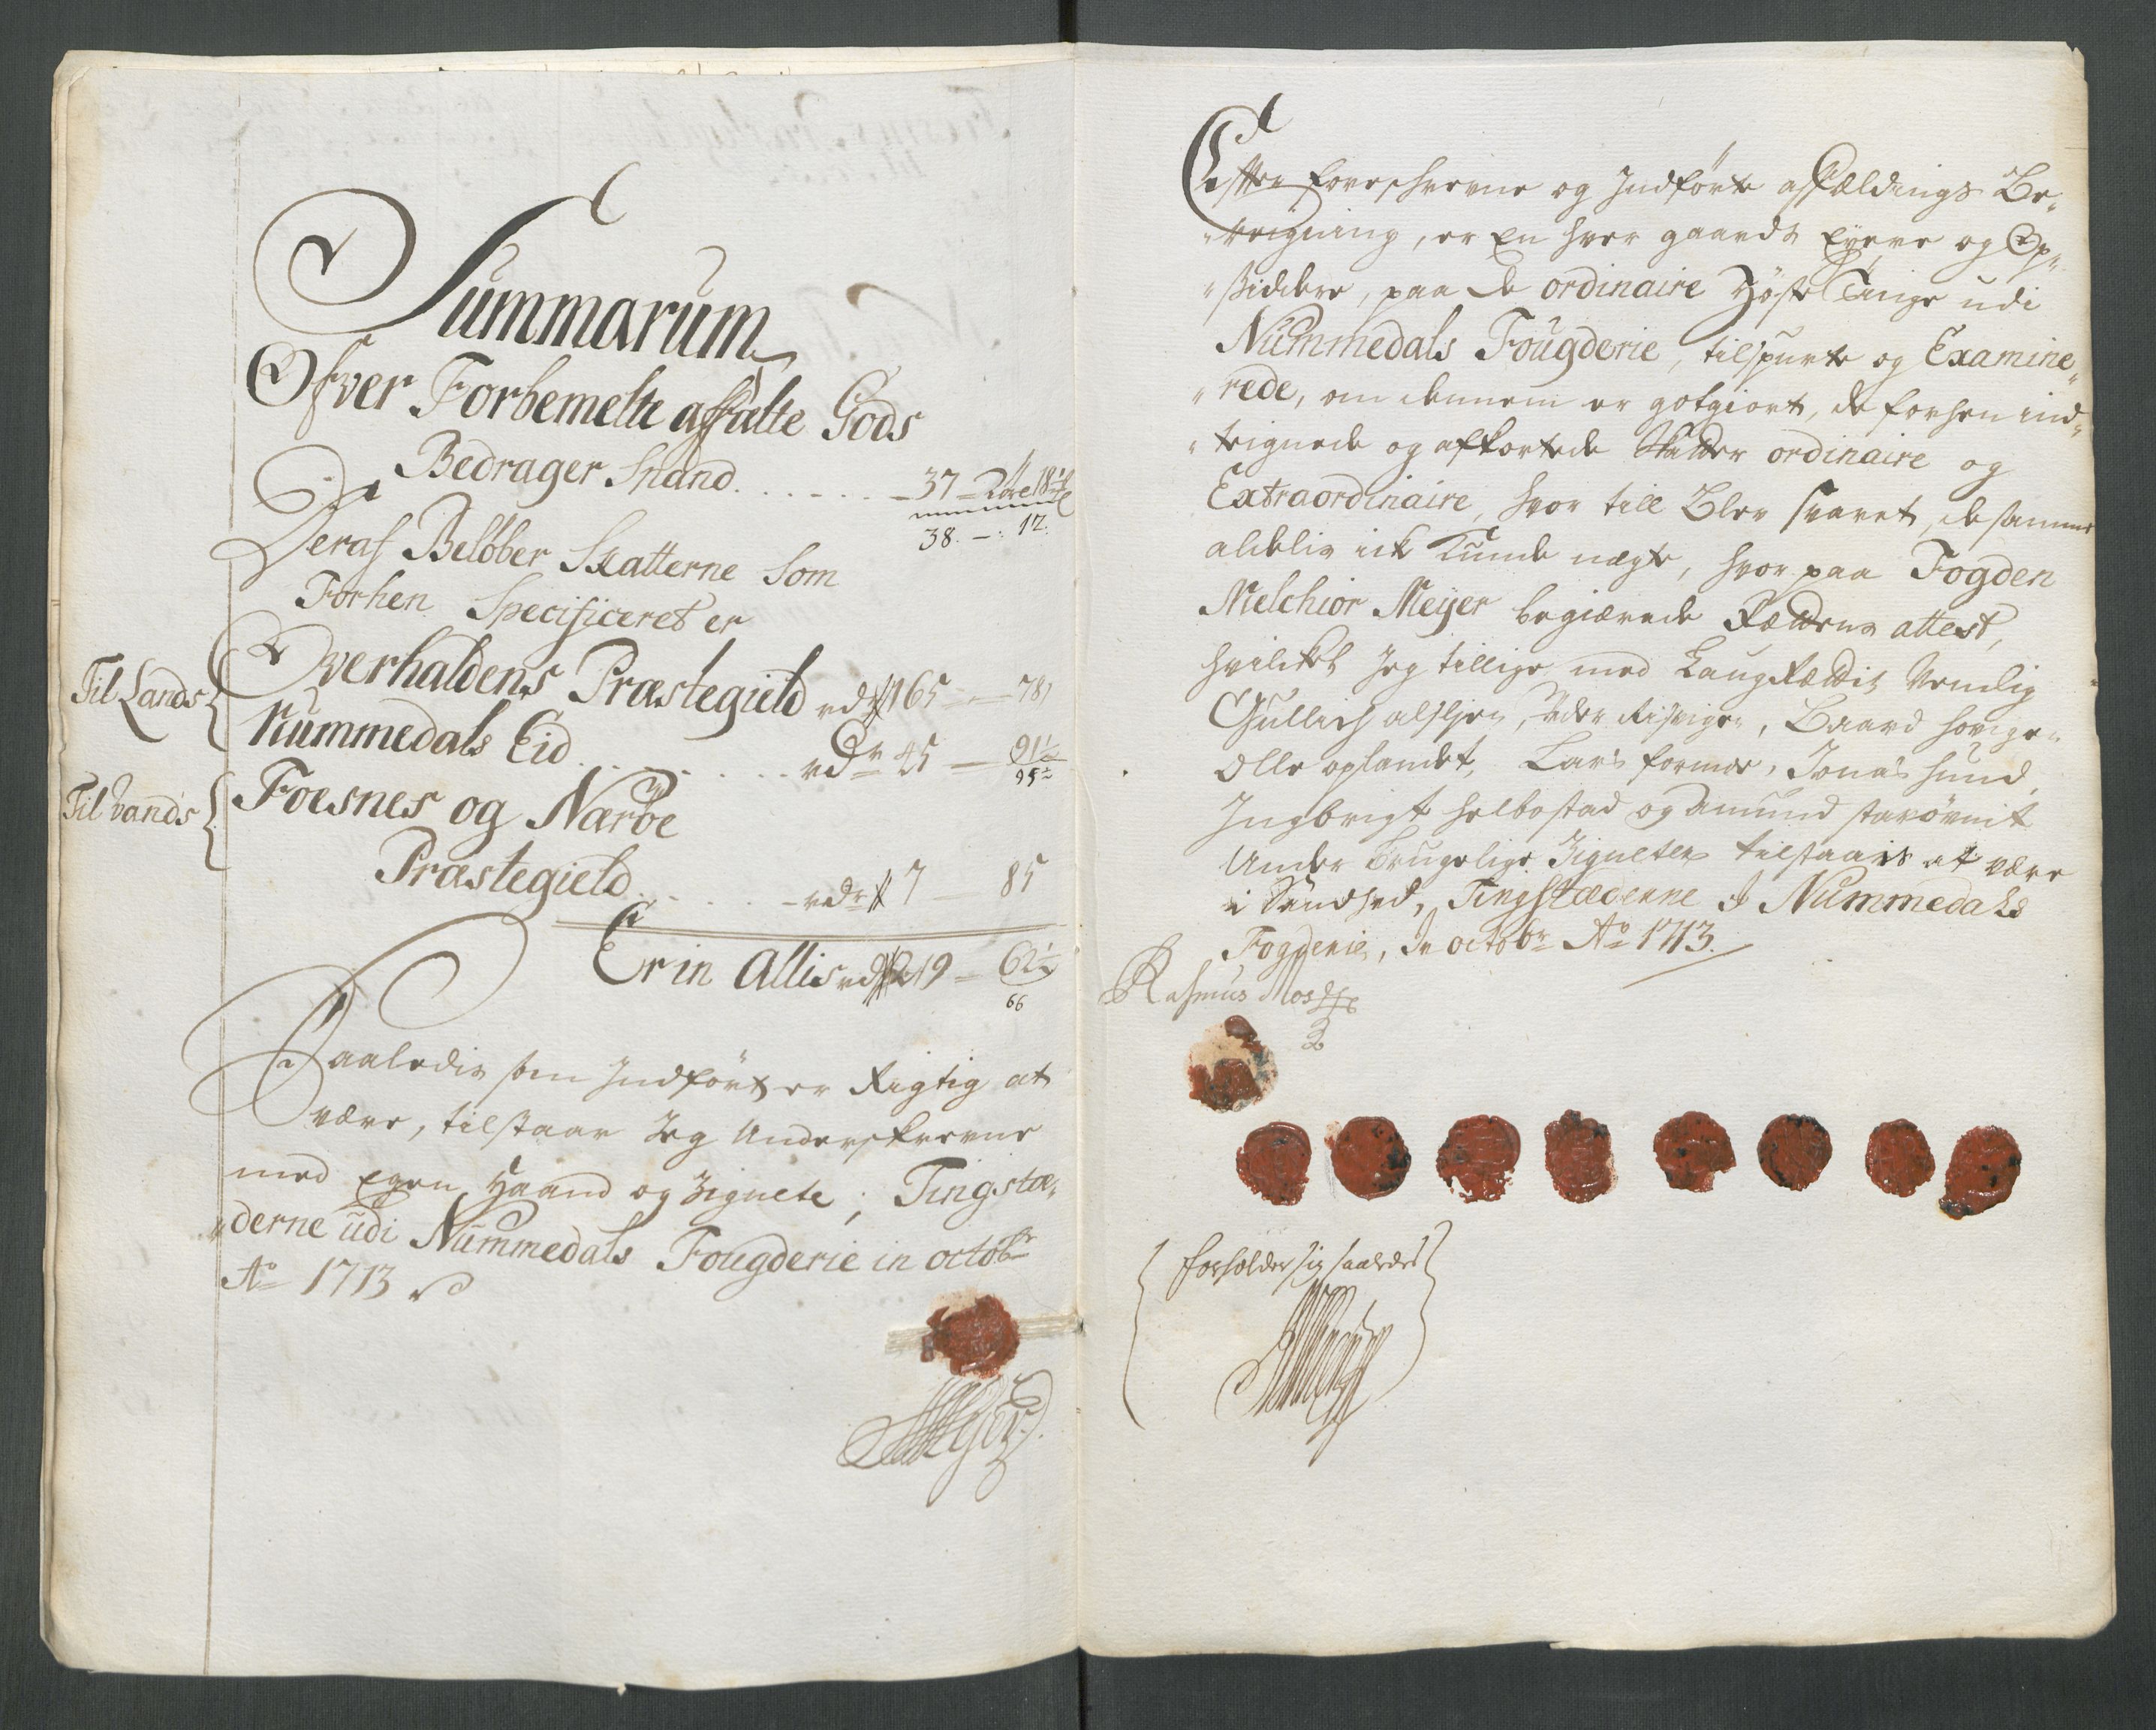 Summarum
Ofver Forbemelte affälte Gods
Bedrager Spand . . . . . . 37 – 2 öre 18
38. – : 12.
Deraf Belöber Skatterne Som
Forhen Specificeret er
Til Lands { Overhaldens Præstegield rdr 165 — 78
Nummedals Eid . . . . . . rdr 45 — 91½
95½
Til Vands { Foesnes og Næröe
Præstegield . . . . . rdr 7 — 85
Er in Allis rdr 219 – 62½
66
Saaledis som Indført er Rigtig at
være, tilstaar Jeg Underskrevne
med Egen Haand og Zignete; Tingstæ„
„derne udi Nummedals Fougderie in octobr
Ao 1713
Efter foreschrevne og Indførte affældings Be„
„reigning, er En hver gaards Eyere og Op„
„siddere, paa de ordinaire Høste Tinge udi
Nummedals Fougderie, tilspurte og Examine„
„rede, om dennem er gotgiort, de forhen ind„
„teignede og afkortede Skatter ordinaire og
Extraordinaire, hvor till Blev svaret, de samme
aldelis ick Kunde nægte, hvor paa Fogden
Melchior Meyer begiærede Rættens attest,
hvilcket Jeg tillige med Laug Rættit Nemlig
Gullich , Peder , Baard
Olle oplandet, Lars formoe, Jonas hund,
Ingbrigt helbostad og Amund
Under Brugelige Zigneter tilstaais at være
i Sandhed, Tingstæderne I Nummedals
Fogderie, In octobr Ao 1713.
Rasmus
forholder sig saaledes